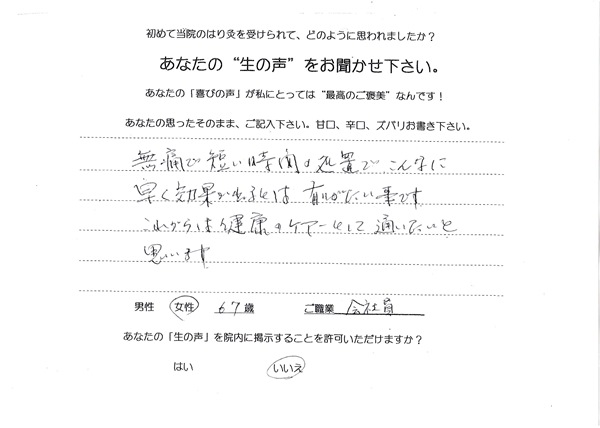 初めて当院のはり灸を受けられて、どのように思われましたか？
あなたの“生の声”をお聞かせ下さい。
あなたの「喜びの声」が私にとっては“最高のご褒美”なんです！
あなたの思ったそのまま、ご記入下さい。甘口、辛口、ズバリお書き下さい。
無痛で短い時間の処置でこんなに
早く効果が出るとは有りがたい事です
これからは健康のケアーとして通いたいと
思います
男性 女性 67歳 ご職業 会社員
あなたの「生の声」を院内に掲示することを許可いただけますか？
はい いいえ